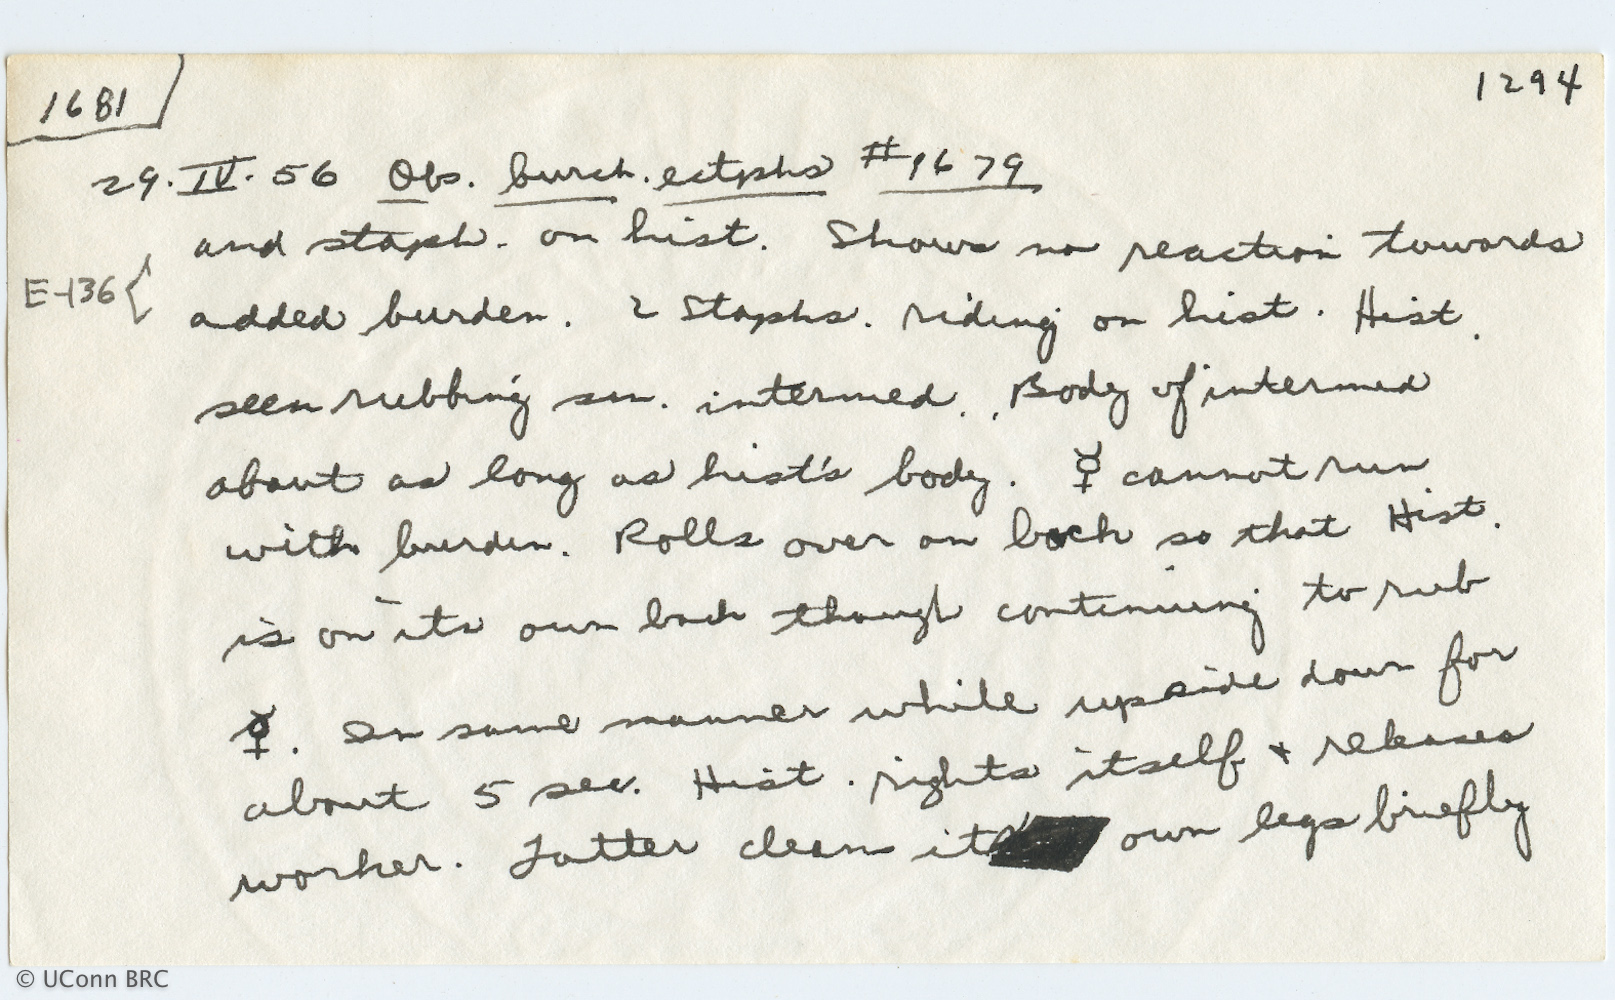 1681
1294
29.IV.56 Obs. burch. ectphs #1679
and staph. on hist. Shows no reaction towards
E-136{
added burden. 2 Staphs. riding on hist. Hist.
seen rubbing sm. intermed. Body of intermed
about as long as hist's body. ☿ cannot run
with burden. Rolls over on back so that Hist.
is on its own back though continuing to rub
☿. In same manner while upside down for
about 5 sec. Hist. rights itself + releases
worker. Latter cleans its own legs briefly
© UConn BRC